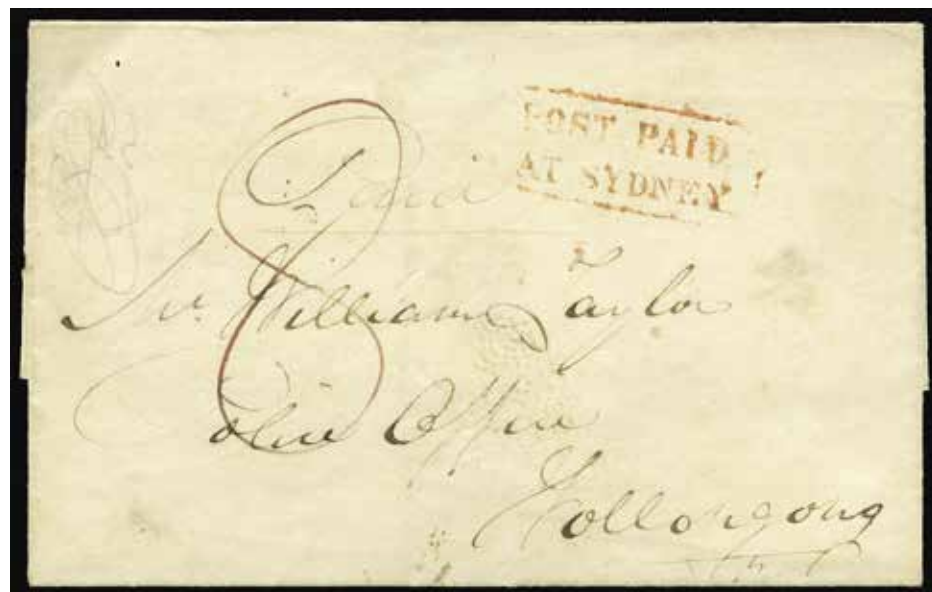 POST PAID
AT SYDNEY
Paid
8
Mr. William Taylor
Police Office
Wollongong